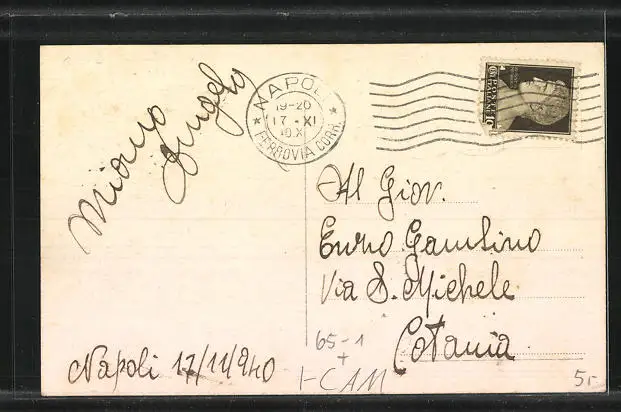 Miano
Angelo
NAPOLI
19-20
17·XI
FERROVIA CORR.
POSTE
ITALIANE
Al Giov.
Enzo Gambino
Via S. Michele
Catania
65-1
+
I-CAM
Napoli 17/11/940
5,-